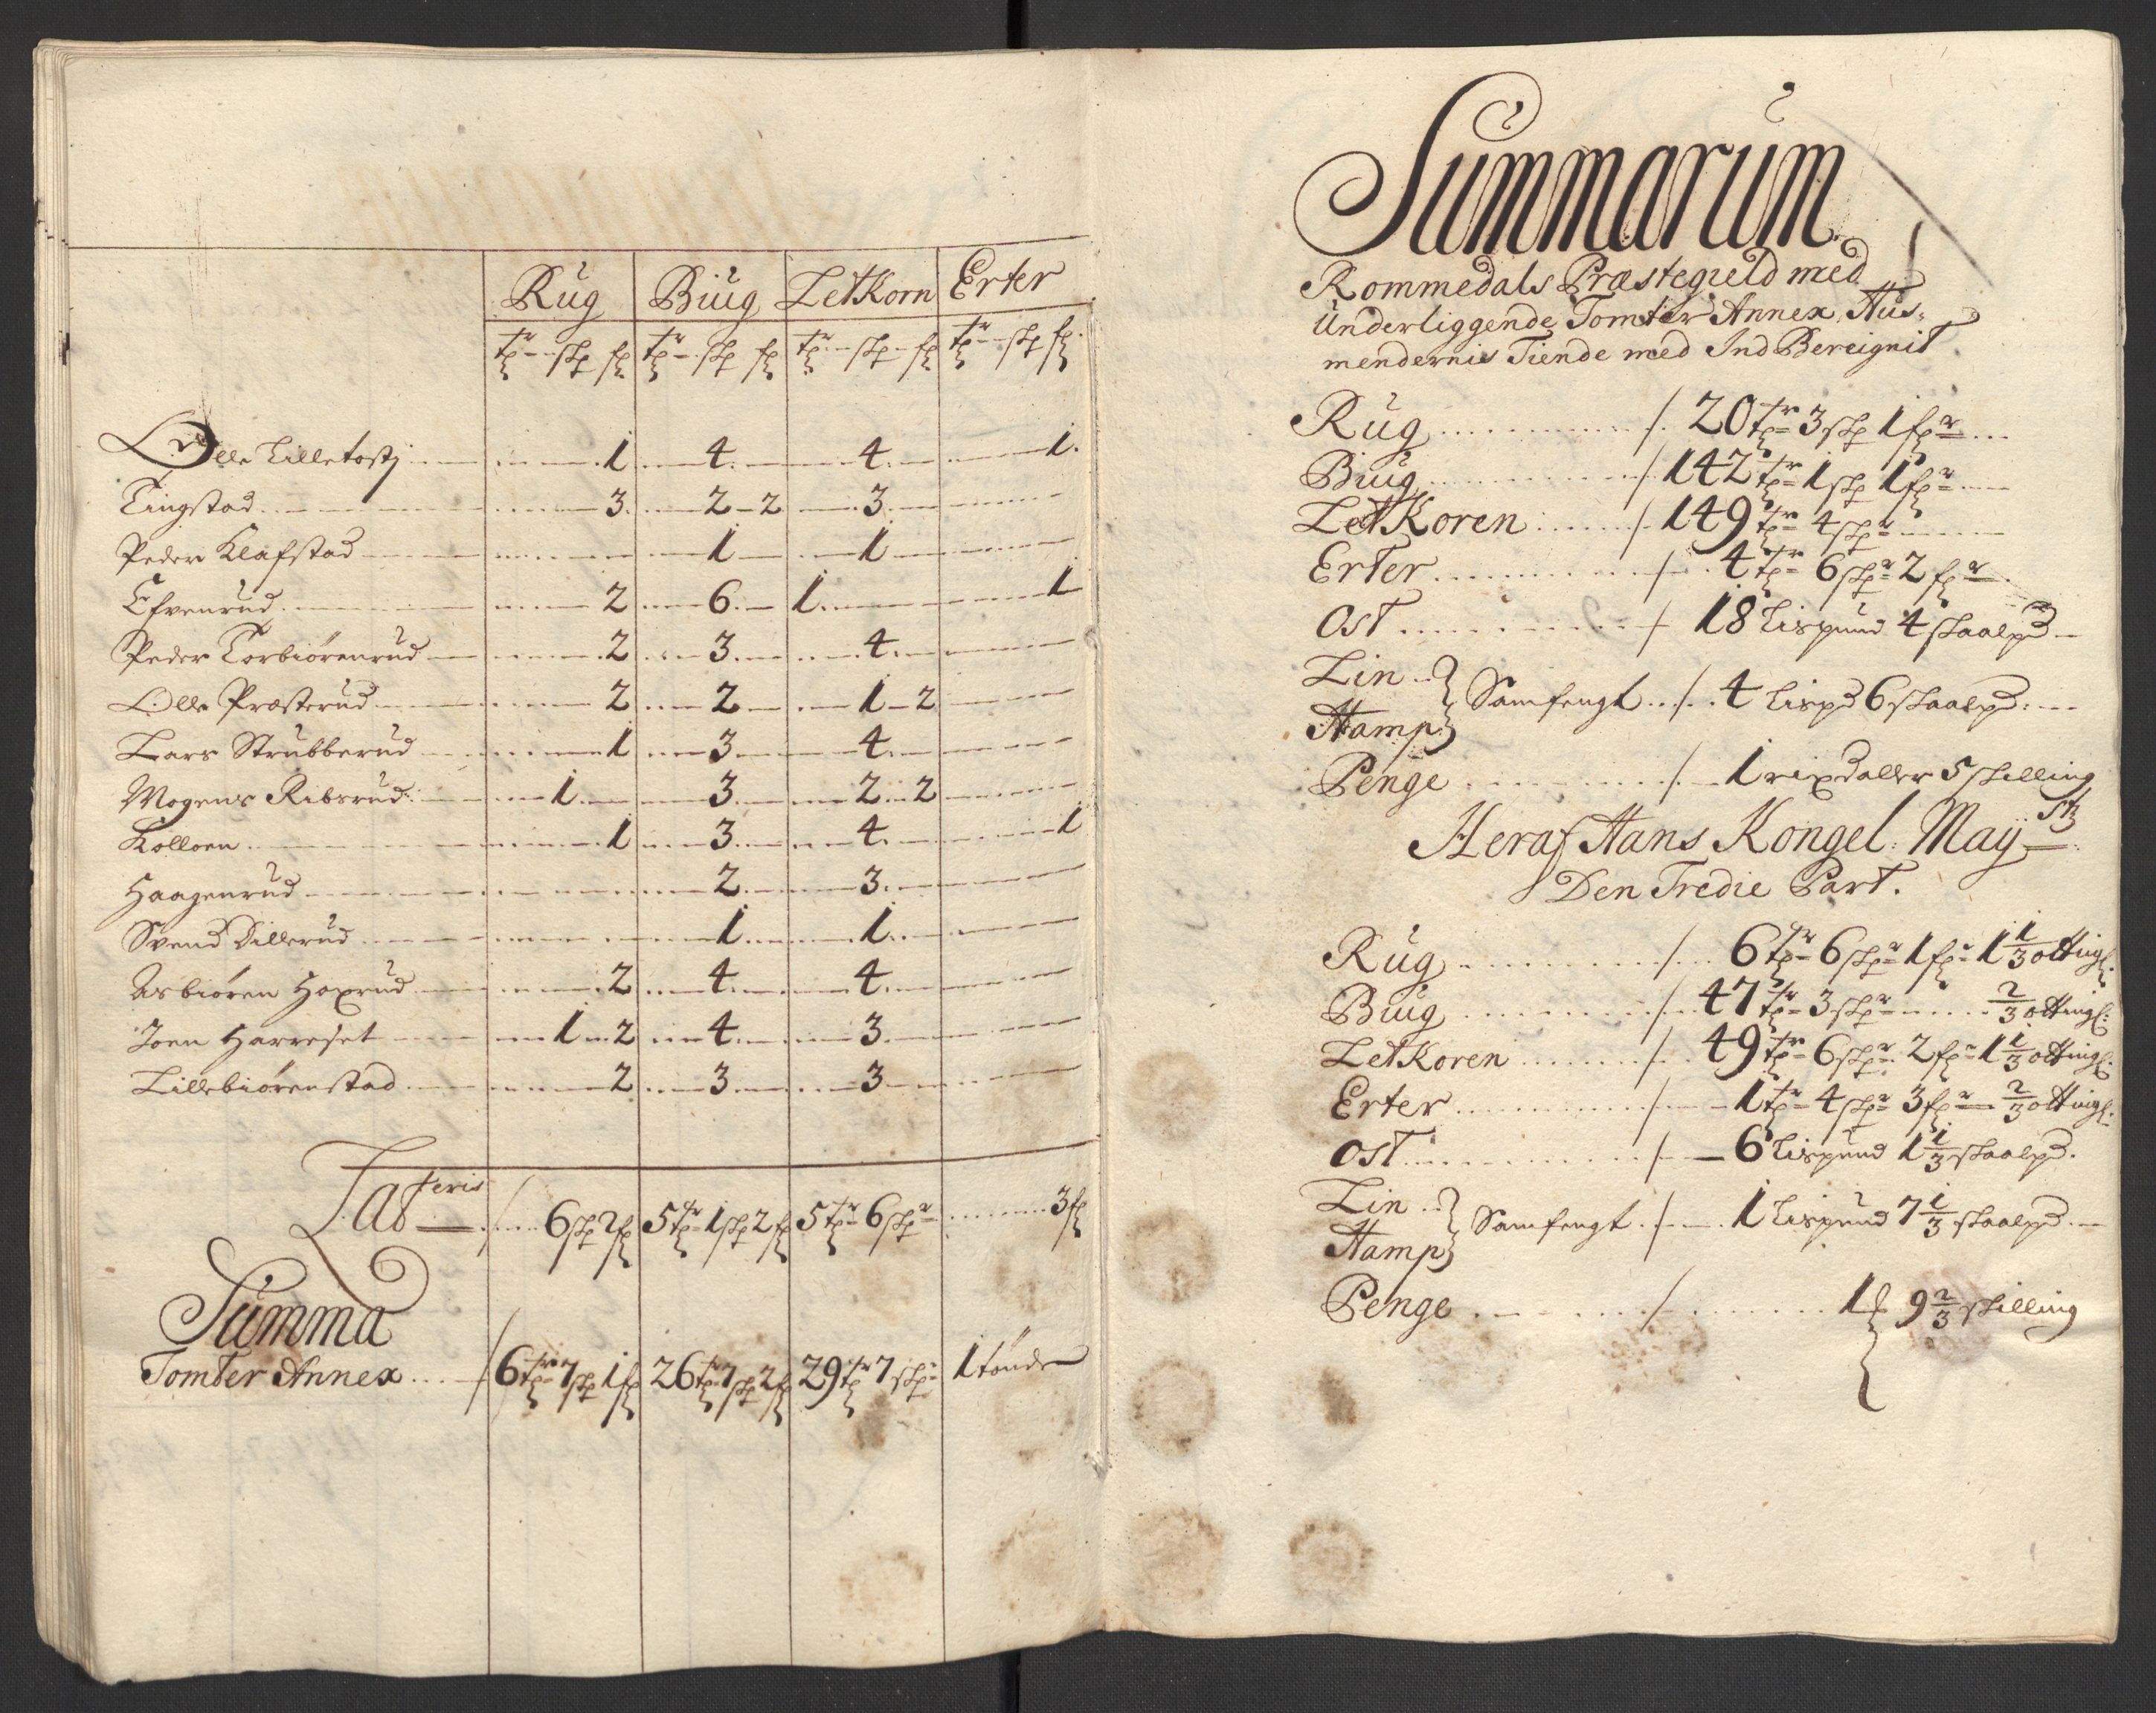 Rug Biug LetKorn Erter
tr skp fr tr skp fr tr skp fr tr skp fr
Olle Lilletostj 1 4 4 1
Tingstad 3 2-2 3
Peder Klafstad 1 1
Efvenrud 2 6 1 1
Peder Torbiørenrud 2 3 4
Olle Præsterud 2 2 1-2
Lars Strubberud 1 3 4
Mogens Ribsrud 1 3 2-2
Kolloen 1 3 4 1
Haagenrud 2 3
Svend Dillerud 1 1
Asbiøren Hoxrud 2 4 4
Joen Harreset 1-2 4 3
Lillebiørenstad 2 3 3
Lateris 6 skp 2 f 5 tr 1 skp 2 f 5 tr 6 skpr 3 f
Summa
Tomter Annex 6 tr 7 skp 1 f 26 tr 7 skp 2 f 29 tr 7 skpr 1 tønde
Summarum
Rommedals Præstegield med
Underliggende Tomter Annex, Hus-
mendernis Tiende med Ind Bereignit
Rug 20 tr 3 skp 1 fr
Biug 142 tr 1 skp 1 fr
LetKoren 149 tr 4 skpr
Erter 4 tr 6 skpr 2 fr
Ost 18 Lispund 4 skaalpd
Lin
Hamp } Samfengt 4 Lispd 6 skaalpd
Penge 1 rixdaller 5 skilling
Heraf Hans Kongel: May st:
Den Tredie Part.
Rug 6 tr 6 skpr 1 fr 1 1/3 otting:
Biug 47 tr 3 skpr 2/3 otting:
LetKoren 49 tr 6 skpr 2 fr 1 1/3 otting:
Erter 1 tr 4 skpr 3 fr 2/3 otting:
Ost 6 Lispund 1 1/3 skaalpd.
Lin
Hamp } Samfengt 1 Lispund 7 1/3 skaalpd.
Penge 1 9 2/3 skilling